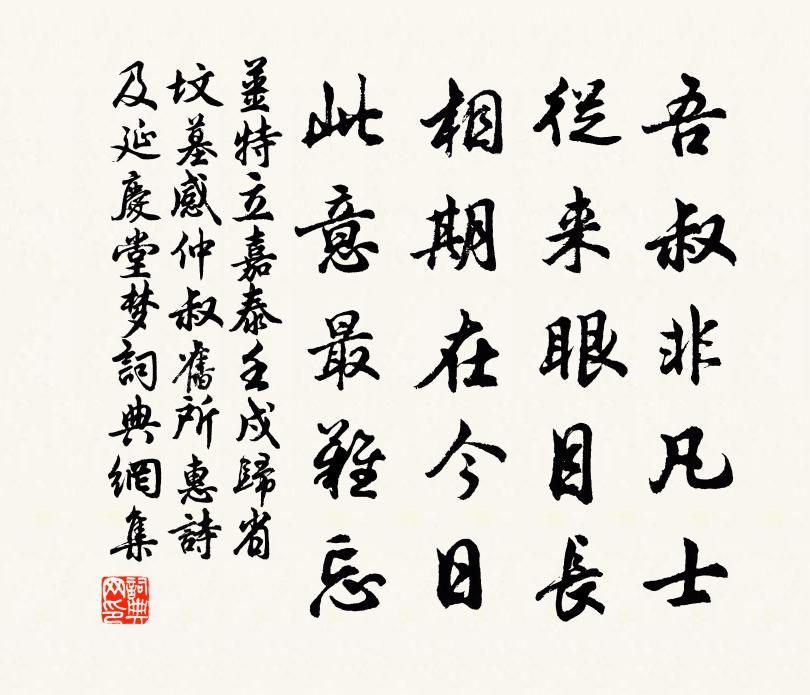 吾叔非凡士
從来眼目長
相期在今日
此意最難忘
姜特立嘉泰壬戌歸省
坟墓感仲叔舊所惠詩
及延慶堂梦詞典網集
詞典
网印